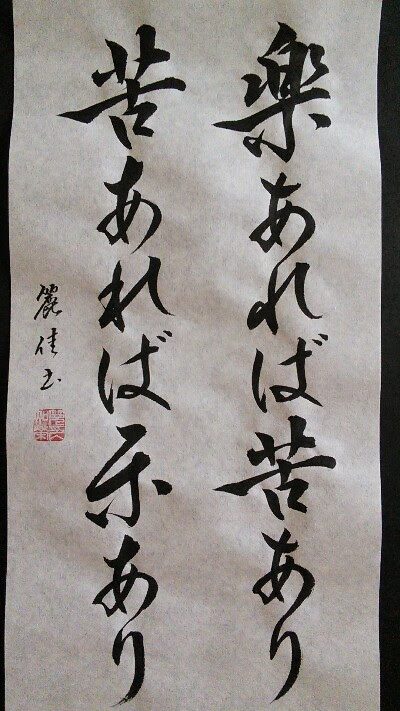 楽あれば苦あり
苦あれば楽あり
麗佳書